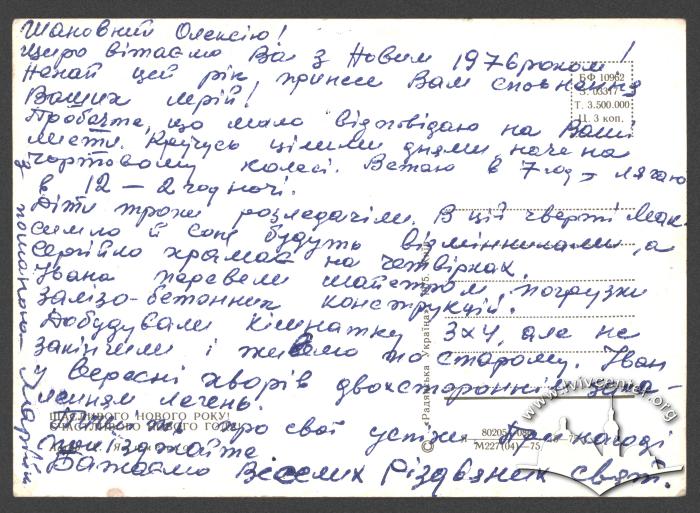 Шановний Олексію!
Щиро вітаємо Вас з Новим 1976 роком!
Нехай цей рік принесе Вам сповнення
Ваших мрій!
Пробачте, що мало відповідаю на Ваші
листи. Кручусь цілими днями наче на
чортовому колесі. Встаю в 7 год, лягаю
в 12 – 2 год ночі.
Діти трохи розледачіли. В цій чверті Мак-
симко й Соня будуть відмінниками, а
Сергійко храмає на четвірках.
Івана перевели майстром погрузки
залізо-бетонних конструкцій.
Добудували кімнатку 3х4, але не
закінчили і живемо по старому. Іван
у вересні хворів двохстороннім запа-
ленням легень.
про свої успіхи. При нагоді
приїзджайте
Бажаємо Веселих Різдвяних свят.
з пошаною
БФ 10962
З. 03317
Т. 3.500.000
Ц. 3 коп.
© «Радянська Україна»
ЩАСЛИВОГО НОВОГО РОКУ!
СЧАСТЛИВОГО НОВОГО ГОДА!
80205
М227(04)—75
www.lvivcenter.org